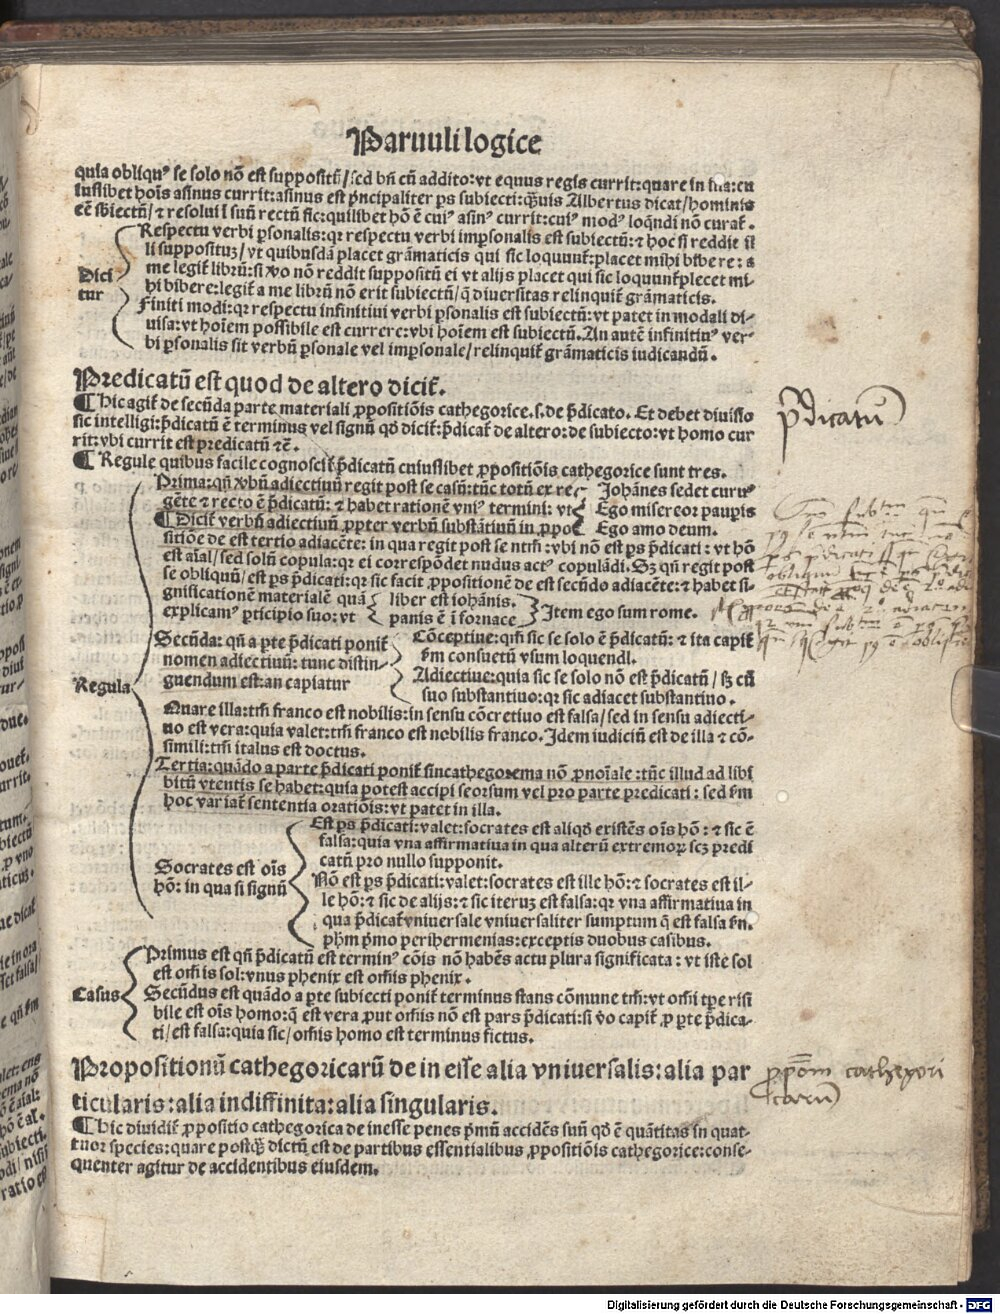 Paruuli logice
quia obliquꝰ se solo nō est suppositū/sed bn̄ cū addito:vt equus regis currit:quare in sua:cu
iuslibet hoīs asinus currit:asinus est p̄ncipaliter ps subiecti:q̄uis Albertus dicat/hominis
eē sbiectū/⁊ resolui ī suū rectū sic:quilibet hō ē cuiꝰ asinꝰ currit:cuiꝰ modꝰ loq̄ndi nō curat̄.
Respectu verbi ꝑsonalis:qꝛ respectu verbi imꝑsonalis est subiectū:⁊ hoc si reddit il
li supposituꝫ/vt quibusdā placet grāmaticis qui sic loquunt̄:placet mihi bibere:a
me legit̄ librū:si ꝟo nō reddit suppositū ei vt alijs placet qui sic loquunt̄ placet mi-
hi bibere:legit̄ a me librū nō erit subiectū/q̄ diuersitas relinquit̄ grāmaticis.
Dici
tur
Finiti modi:qꝛ respectu infinitiui verbi ꝑsonalis est subiectū:vt patet in modali di-
uisa:vt hoīem possibile est currere:vbi hoīem est subiectū. An autē infinitiuꝰ ver-
bi ꝑsonalis sit verbū ꝑsonale vel imꝑsonale/relinquit̄ grāmaticis iudicandū.
Predicatū est quod de altero dicit̄.
p̄dicatū
¶ Hic agit̄ de secūda parte materiali ꝓpositiōis cathegorice.s.de p̄dicato. Et debet diuisio
sic intelligi:p̄dicatū ē terminus vel signū qd̄ dicit̄:p̄dicat̄ de altero:de subiecto:vt homo cur
rit:vbi currit est predicatū ⁊c̄.
¶ Regule quibus facile cognoscit̄ p̄dicatū cuiuslibet ꝓpositiōis cathegorice sunt tres.
Prima:qn̄ ꝟbū adiectiuū regit post se casū:tūc totū ex re- Johānes sedet curuꝰ
gēte ⁊ recto ē p̄dicatū: ⁊ habet rationē vniꝰ termini: vt Ego misereor pauꝑis
¶ Dicit̄ verbū adiectiuū ꝓpter verbū substātiuū in ꝓpo- Ego amo deum.
sitiōe de est tertio adiacēte: in qua regit post se ntm̄:vbi nō est ps p̄dicati : vt hō
est aīal/sed solū copula:qꝛ ei correspōdet nudus actꝰ copulādi. Sꝫ qn̄ regit post
se obliquū/est ps p̄dicati:qꝛ sic facit ꝓpositionē de est secūdo adiacēte:⁊ habet si-
gnificationē materialē quā liber est iohānis.
explicamꝰ ꝑticipio suo: vt panis ē ī fornace Item ego sum rome.
Secūda: qn̄ a ꝑte p̄dicati ponit̄ Cōceptiue:qm̄ sic se solo ē p̄dicatū: ⁊ ita capit̄
nomen adiectiuū: tunc distin- ẜm consuetū vsum loquendi.
guendum est:an capiatur Adiectiue:quia sic se solo nō est p̄dicatū/ sꝫ cū
suo substantiuo:qꝛ sic adiacet substantiuo.
Regula
Quare illa:tm̄ franco est nobilis:in sensu cōcretiuo est falsa/sed in sensu adiecti-
uo est vera:quia valet:tm̄ franco est nobilis franco. Idem iudiciū est de illa ⁊ cō-
simili:tm̄ italus est doctus.
Tertia:quādo a parte p̄dicati ponit̄ sincathegorema nō ꝓnoīale:tūc illud ad libi
bitū vtentis se habet:quia potest accipi seorsum vel pro parte predicati : sed ẜm
hoc variat̄ sententia orationis:vt patet in illa.
Est ps p̄dicati:valet:socrates est aliqd̄ existēs oīs hō: ⁊ sic ē
falsa:quia vna affirmatiua in qua alterū extremoꝝ scꝫ predi
catū pro nullo supponit.
Socrates est oīs
hō: in qua si signū
Nō est ps p̄dicati:valet:socrates est ille hō:⁊ socrates est il-
le hō:⁊ sic de alijs:⁊ sic iteruꝫ est falsa:qꝛ vna affirmatiua in
qua p̄dicat̄ vniuersale vniuersaliter sumptum q̄ est falsa ẜm
ph̄m p̄mo perihermenias:exceptis duobus casibus.
Primus est qn̄ p̄dicatū est terminꝰ cōis nō habēs actu plura significata : vt iste sol
est om̄is sol:vnus phenix est om̄is phenix.
Casus
Secūdus est quādo a ꝑte subiecti ponit̄ terminus stans cōmune tm̄:vt om̄i tꝑe risi
bile est oīs homo:q̄ est vera ꝓut om̄is nō est pars p̄dicati:si ꝟo capit̄ ꝓ ꝑte p̄dica-
ti/est falsa:quia sic/om̄is homo est terminus fictus.
Propositionū cathegoricarū de in esse alia vniuersalis:alia par
ticularis:alia indiffinita:alia singularis.
ꝓp̄om cathegori
carū
¶ Hic diuidit̄ ꝓpositio cathegorica de inesse penes p̄mū accidēs suū qd̄ ē quātitas in quat-
tuor species:quare postq̄ꝫ dictū est de partibus essentialibus ꝓpositiōis cathegorice:conse-
quenter agitur de accidentibus eiusdem.
Digitalisierung gefördert durch die Deutsche Forschungsgemeinschaft - DFG